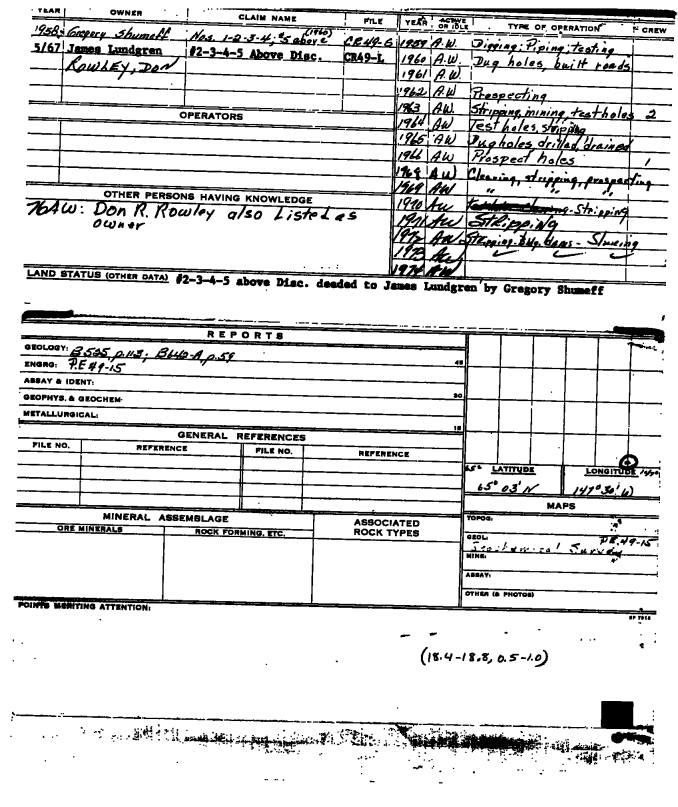 YEAR OWNER CLAIM NAME FILE YEAR ACTIVE OR IDLE TYPE OF OPERATION CREW
1958 Gregory Shumeff Nos. 1-2-3-4; #5 above (1960) CR49-G 1959 A.W. Digging; Piping; testing
5/67 James Lundgren #2-3-4-5 Above Disc. CR49-L 1960 A.W. Dug holes, built roads
Rowley, Don 1961 A.W.
1962 A.W Prospecting
OPERATORS 1963 AW. Stripping, mining, testholes 2
1964 AW. Test holes, stripping
1965 AW. Dug holes, drilled, drained
1966 AW Prospect holes 1
1968 AW Clearing, stripping, prospecting
1969 AW " " "
OTHER PERSONS HAVING KNOWLEDGE 1970 AW -Stripping
76AW: Don R. Rowley also Listed as 1971 AW Stripping
owner 1972 AW Stripping-Dug dams - Sluicing
1973 AW ✓ ✓ ✓
1974 AW
LAND STATUS (OTHER DATA) #2-3-4-5 above Disc. deeded to James Lundgren by Gregory Shumeff
REPORTS
GEOLOGY: B525, p.113; B640-A, p.59 45
ENGRG: P.E 49-15
ASSAY & IDENT:
GEOPHYS. & GEOCHEM 30
METALLURGICAL: 15
GENERAL REFERENCES
FILE NO. REFERENCE FILE NO. REFERENCE
65° LATITUDE LONGITUDE
65° 03' N 147° 30' W
MAPS
MINERAL ASSEMBLAGE ASSOCIATED ROCK TYPES
ORE MINERALS ROCK FORMING, ETC.
TOPOG:
GEOL: PE.49-15
MINE:
ASSAY:
OTHER (& PHOTOS)
POINTS MERITING ATTENTION:
(18.4-18.8, 0.5-1.0)